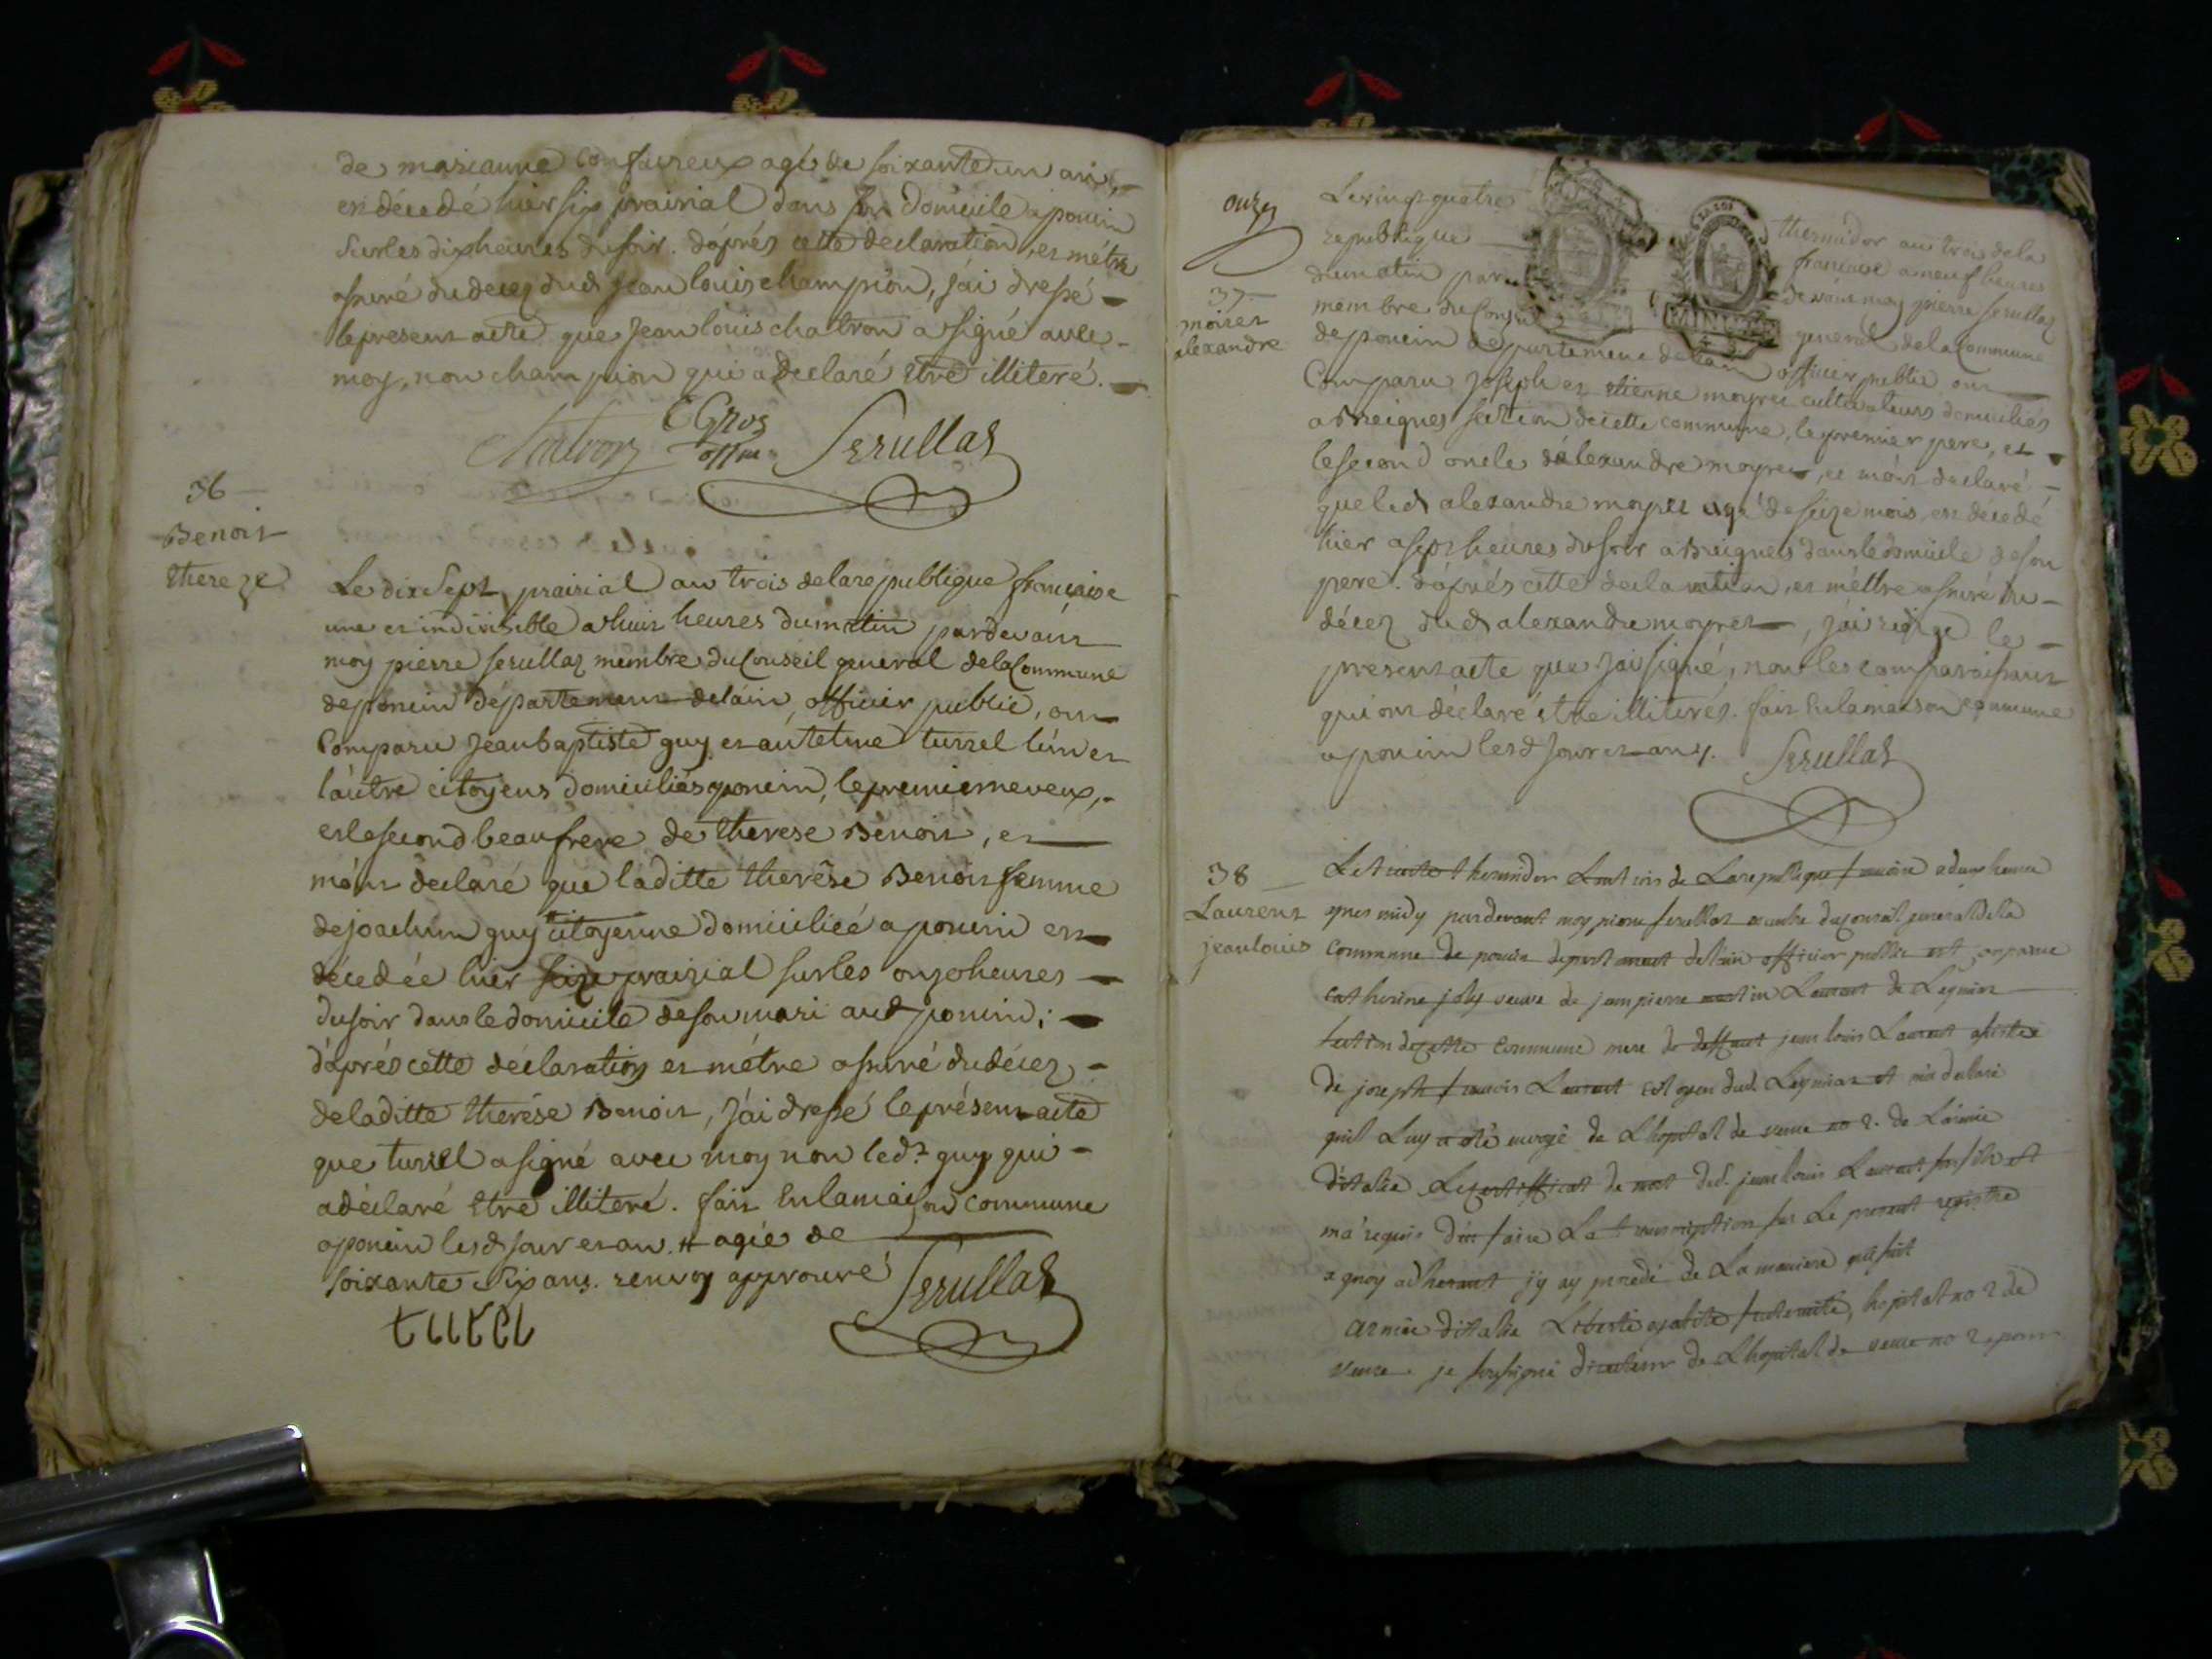 de marianne Confavreux agé de soixante un ans,
est décedé hier six prairial dans son domicile a poncin
sur les dix heures du soir. d'aprés cette declaration, et métre
assuré du decez dud jean louis champion, j'ai dressé
le present acte que jean louis chatron a signé avec
moy, non champion qui a declaré etre illiteré.
Chatron
CGros
offm
Serullaz
36
Benoit
thereze
Le dix sept prairial an trois de la republique française
une et indivisible a huit heures du matin pardevant
moy pierre serullaz membre du Conseil general de la Commune
de poncin département de l'ain, officier public, ont
Comparu Jean baptiste guy et antelme turrel l'un et
l'autre citoyens domiciliés a poncin, le premier neveux,
et le second beaufrere de therese Benoit, et
m'ont declaré que laditte therése Benoit femme
de joachim guy # citoyenne domiciliéé a poncin est
décedée hier seize prairial sur les onze heures
du soir dans le domicile de son mari aud poncin;
d'aprés cette déclaration et métre assuré du décez
de laditte therése Benoit, j'ai dressé le présent acte
que turrel a signé avec moy non led.t guy qui
a déclaré etre illiteré. fait en la maison commune
a poncin lesd jour et an. # agée de
soixante six ans. renvoy approuvé
Serullaz
turrel
onze
37
moiret
alexandre
Le vingt quatre thermidor an trois de la
republique française a neuf heures
du matin par devant moy pierre serullaz
membre du Conseil general de la Commune
de poncin département de l'ain officier public ont
Comparu joseph et etienne moyret cultivateurs domiciliés
a Breignes section de cette commune, le premier pere, et
le second oncle d'alexandre moyret, et m'ont declaré
que led alexandre moyret agé de seize mois est decedé
hier a sept heures du soir a Breignes dans le domicile de son
pere. d'aprés cette declaration, et métre assuré du
décez dud alexandre moyret, j'ai redigé le
present acte que j'ai signé, non les comparoissans
qui ont déclaré etre illiterés. fait en la maison commune
a poncin lesd jour et an.
Serullaz
38
Laurent
jean louis
Le trente thermidor Lant rois de La republique francoise a deux heures
apres midy pardevant moy pierre serullaz membre du conseil general de la
commune de poncin departement de l'ain officier public est comparue
catherine joly veuve de jean pierre martin Laurent de
section de cette commune mere de deffunt jean louis Laurent assistee
de joseph francois Laurent citoyen dud. et m'a declaré
quil Luy a été envoyé de Lhopital de no 2. de L'armée
d'italie Le certifficat de mort dud. jean louis Laurent son fils et
m'a requis d'en faire La transcription sur Le present registre
a quoy adherant j'y ay procedé de La maniere qui suit
armée d'italie Liberté egalité fraternité, hopital no 2 de
je soussigné directeur de Lhopital de no 2